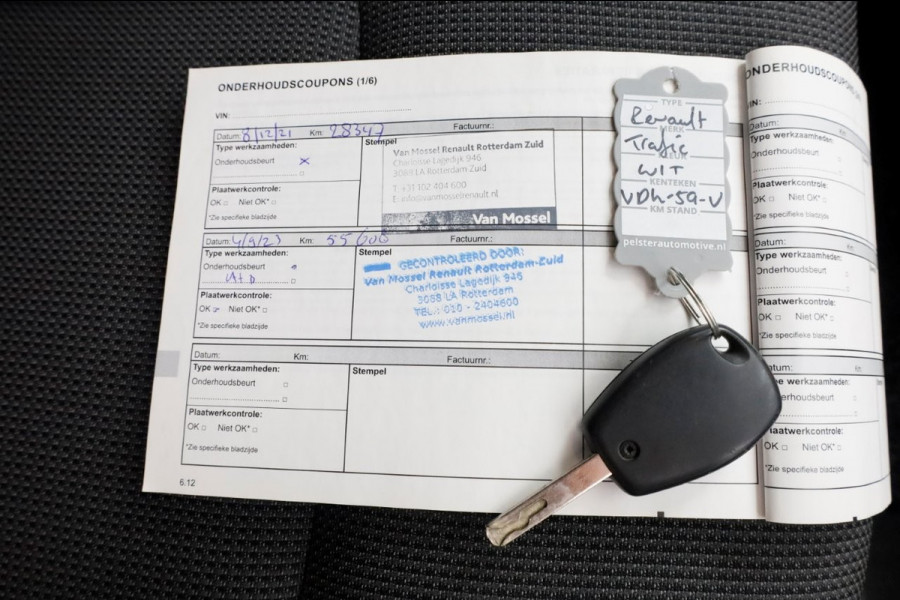 ONDERHOUDSCOUPONS (1/6)
VIN:
Datum: 8/12/21 Km: 28347 Factuurnr.:
Type werkzaamheden:
Onderhoudsbeurt x
Plaatwerkcontrole:
OK Niet OK*
*Zie specifieke bladzijde
Stempel
Van Mossel Renault Rotterdam Zuid
Charloisse Lagedijk 946
3068 LA Rotterdam Zuid
Van Mossel
Datum: Km: Factuurnr.:
Type werkzaamheden:
Onderhoudsbeurt
Plaatwerkcontrole:
OK Niet OK*
*Zie specifieke bladzijde
Stempel
GECONTROLEERD DOOR:
Van Mossel Renault Rotterdam-Zuid
Charloisse Lagedijk 946
3068 LA Rotterdam
TEL.: 010 - 2404600
www.vanmossel.nl
Datum: Km: Factuurnr.:
Type werkzaamheden:
Onderhoudsbeurt
Plaatwerkcontrole:
OK Niet OK*
*Zie specifieke bladzijde
Stempel
6.12
TYPE
Renault
MERK
Trafic
WIT
KENTEKEN
VDH-59-V
KM STAND
pelsterautomotive.nl
VIN:
Datum: Km:
Type werkzaamheden:
Onderhoudsbeurt
Plaatwerkcontrole:
OK Niet OK*
*Zie specifieke bladzijde
Datum: Km:
Type werkzaamheden:
Onderhoudsbeurt
Plaatwerkcontrole:
OK Niet OK*
*Zie specifieke bladzijde
OK Niet OK*
*Zie specifieke bladzijde